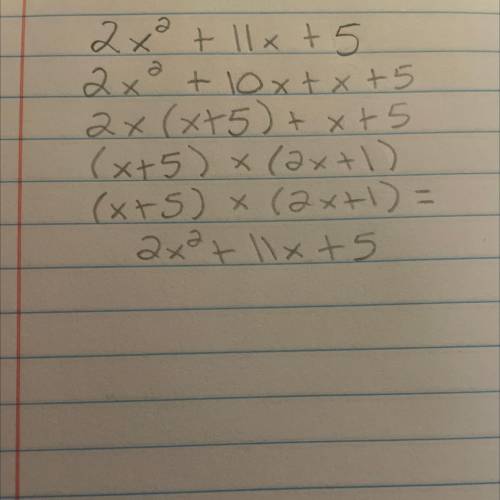 2x² + 11x + 5
2x² + 10x + x + 5
2x (x+5) + x + 5
(x+5) × (2x+1)
(x+5) × (2x+1) =
2x² + 11x + 5